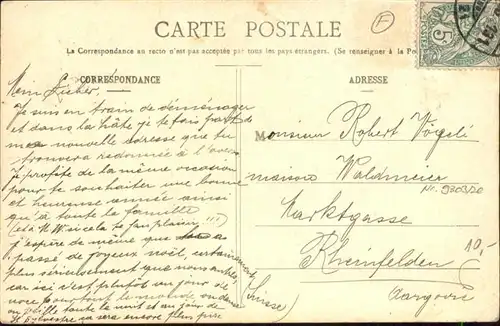 CARTE POSTALE
La Correspondance au recto n'est pas acceptée par tous les pays étrangers. (Se renseigner à la
CORRESPONDANCE
ADRESSE
F
5c
Mein Lieber,
Je suis en train de déménager
et dans la hâte je te fais part de
ma nouvelle adresse que tu
trouvera redonnée à l'
je profite de la même occasion
pour te souhaiter une bonne
et heureuse année ainsi
qu'à toute la famille
(et à si cela te fais plaisir!!!)
j'espère de même que
passé de joyeux noël, certainement
plus sérieusement que nous autres,
car ici c'est plutôt un jour de
noce pour tout le monde on danse
toute la nuit et au jour de
St Sylvestre ça sera encore plus pire
Monsieur Robert Vögeli
maison Waldmeier
Marktgasse
Rheinfelden
(Suisse)
Argovie
10,-